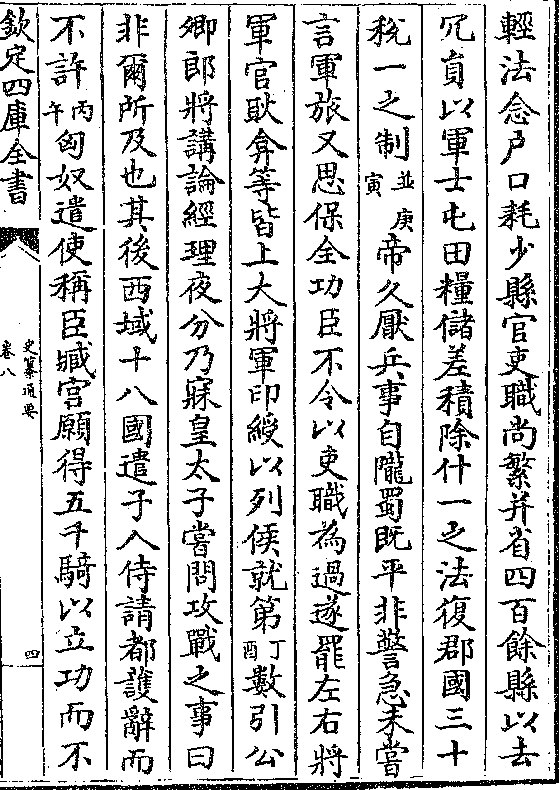 輕法念戶口耗少縣官吏職尚繁并省四百餘縣以去
冗員以軍士屯田糧儲差積除什一之法復郡國三十
稅一之制並庚寅帝久厭兵事自隴蜀既平非警急未嘗
言軍旅又思保全功臣不令以吏職為過遂罷左右將
軍官耿弇等皆上大將軍印綬以列侯就第丁酉數引公
卿郎將講論經理夜分乃寐皇太子嘗問攻戰之事曰
非爾所及也其後西域十八國遣子入侍請都護辭而
不許丙午匈奴遣使稱臣臧宮願得五千騎以立功而不
欽定四庫全書
史纂通要
卷八
四